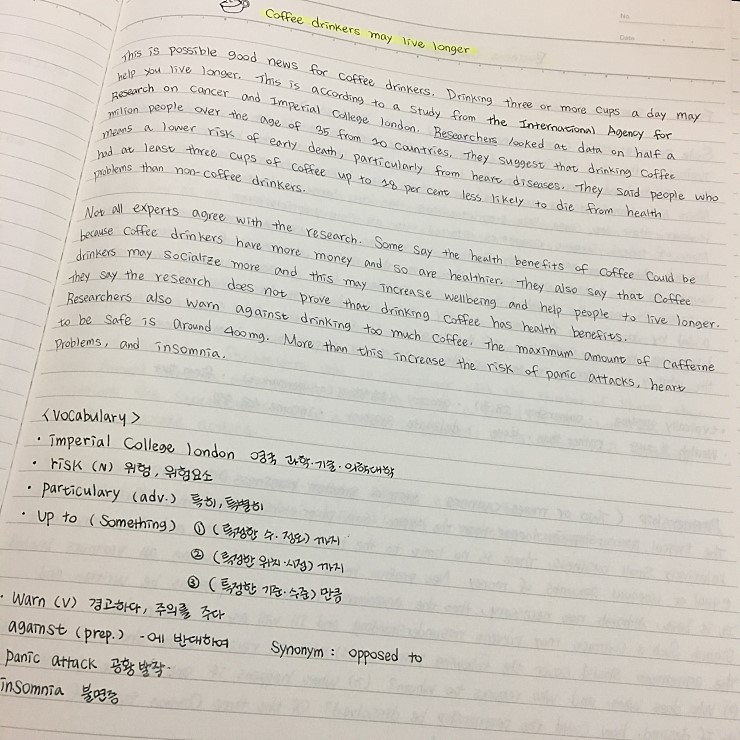 No.
Date
Coffee drinkers may live longer
This is possible good news for coffee drinkers. Drinking three or more cups a day may
help you live longer. This is according to a study from the International Agency for
Research on Cancer and Imperial College london. Researchers looked at data on half a
million people over the age of 35 from 10 countries. They suggest that drinking coffee
means a lower risk of early death, particularly from heart diseases. They said people who
had at least three cups of coffee up to 18 per cent less likely to die from health
problems than non-coffee drinkers.
Not all experts agree with the research. Some say the health benefits of coffee could be
because coffee drinkers have more money and so are healthier. They also say that coffee
drinkers may socialize more and this may increase wellbeing and help people to live longer.
They say the research does not prove that drinking coffee has health benefits.
Researchers also warn against drinking too much coffee. The maximum amount of caffeine
to be safe is around 400mg. More than this increase the risk of panic attacks, heart
problems, and insomnia.
<vocabulary>
· imperial College london 영국 과학·기술·의학대학
· risk (N) 위험, 위험요소
· particulary (adv.) 특히, 특별히
· up to (something) ① (특정한 수·정도) 까지
② (특정한 위치·시점) 까지
③ (특정한 기준·수준) 만큼
· Warn (v) 경고하다, 주의를 주다
against (prep.) -에 반대하여 Synonym : opposed to
panic attack 공황 발작.
insomnia 불면증